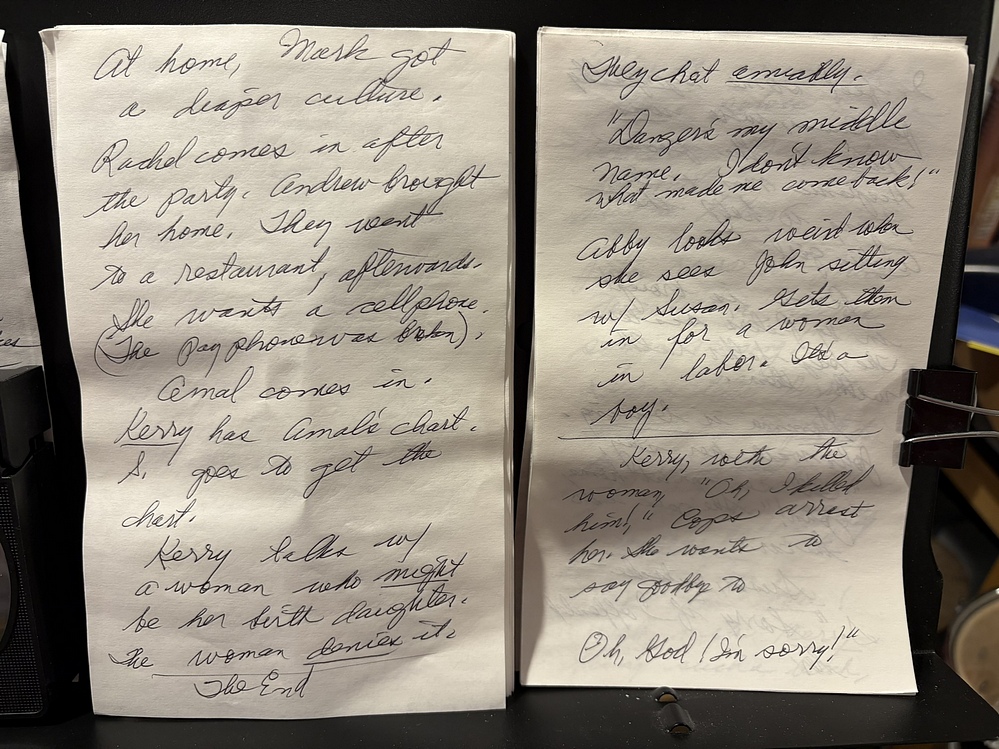 At home, Mark got
a diaper culture.
Rachel comes in after
the party. Andrew brought
her home. They went
to a restaurant, afterwards.
She wants a cellphone.
(The pay phone was broken).
Amal comes in.
Kerry has Amal's chart.
S. goes to get the
chart.
Kerry talks w/
a woman who might
be her birth daughter.
The woman denies it.
The End
They chat amiably.
"Danger's my middle
name. I don't know
what made me come back!"
Abby looks weird when
she sees John sitting
w/ Susan. Gets them
in for a woman
in labor. It's a
boy.
Kerry, with the
woman, "Oh, I killed
him!," Cops arrest
her. She wants to
say goodby to
Oh, God! I'm sorry!"